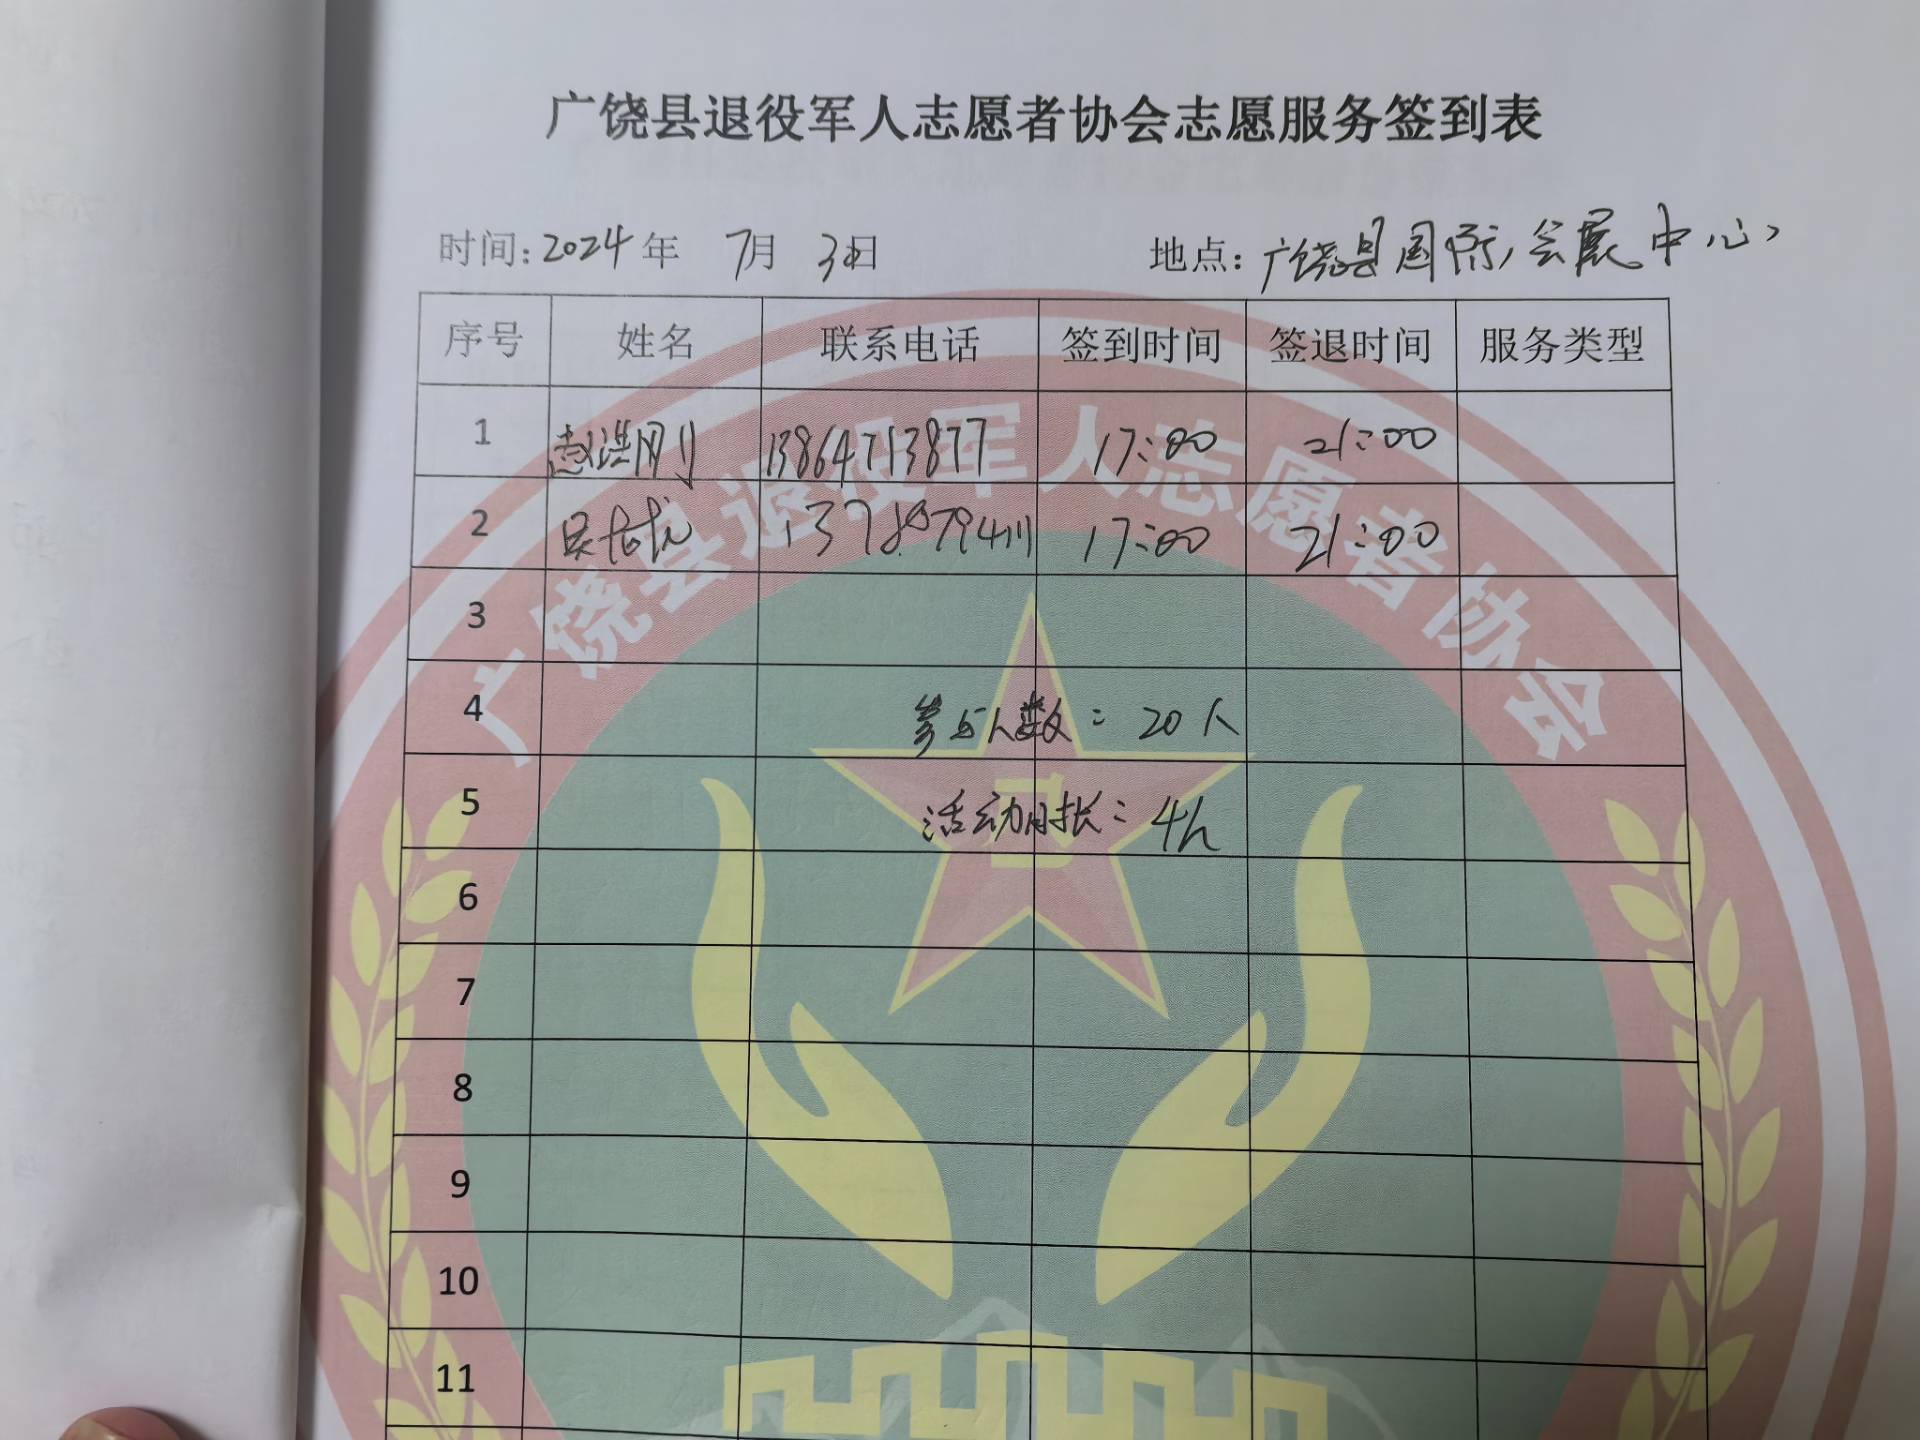 广饶县退役军人志愿者协会志愿服务签到表
时间:2024年 7月 3日 地点:广饶县国际会展中心
序号 姓名 联系电话 签到时间 签退时间 服务类型
1 赵洪刚 13864713877 17:00 21:00
2 17:00 21:00
3
4 参与人数:20人
5 活动时长:4h
6
7
8
9
10
11
广饶县退役军人志愿者协会